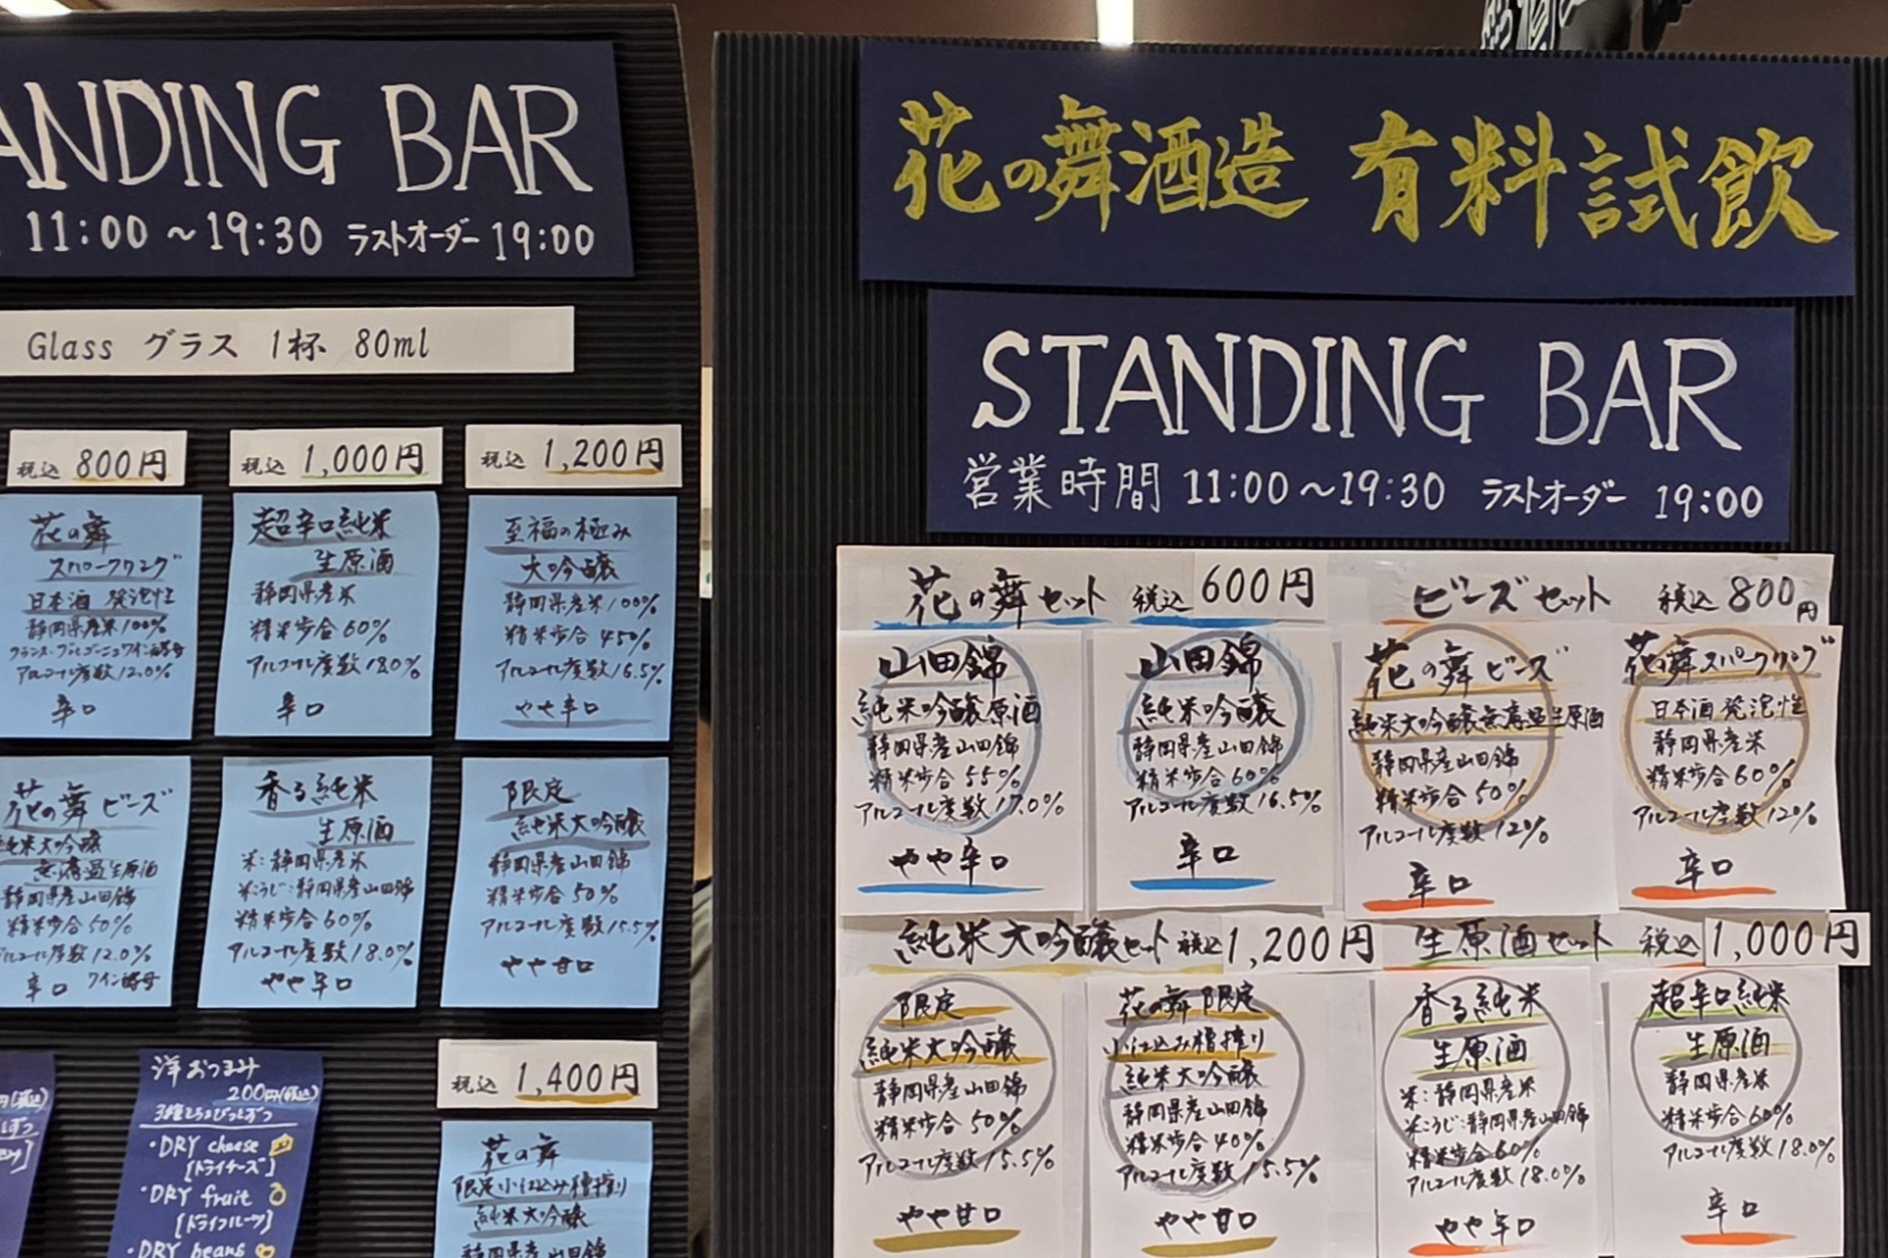 ANDING BAR
11:00～19:30 ラストオーダー 19:00
Glass グラス 1杯 80ml
税込 800円
花の舞
スパークリング
日本酒 発泡性
静岡県産米100%
フランス・ブルゴーニュワイン酵母
アルコール度数12.0%
辛口
税込 1,000円
超辛口純米
生原酒
静岡県産米
精米歩合60%
アルコール度数18.0%
辛口
税込 1,200円
至福の極み
大吟醸
静岡県産米100%
精米歩合45%
アルコール度数16.5%
やや辛口
花の舞 ビーズ
純米大吟醸
無濾過生原酒
静岡県産山田錦
精米歩合50%
アルコール度数12.0%
辛口 ワイン酵母
香る純米
生原酒
米:静岡県産米
米こうじ:静岡県産山田錦
精米歩合60%
アルコール度数18.0%
やや辛口
限定
純米大吟醸
静岡県産山田錦
精米歩合50%
アルコール度数15.5%
やや甘口
洋おつまみ
200円(税込)
3種ちょびっとずつ
・DRY cheese
[ドライチーズ]
・DRY fruit
[ドライフルーツ]
・DRY beans
税込 1,400円
花の舞
限定小仕込み槽搾り
純米大吟醸
静岡県産山田錦
花の舞酒造 有料試飲
STANDING BAR
営業時間 11:00～19:30 ラストオーダー 19:00
花の舞セット 税込 600円
山田錦
純米吟醸原酒
静岡県産山田錦
精米歩合 55%
アルコール度数17.0%
やや辛口
山田錦
純米吟醸
静岡県産山田錦
精米歩合60%
アルコール度数16.5%
辛口
ビーズセット 税込 800円
花の舞 ビーズ
純米大吟醸無濾過生原酒
静岡県産山田錦
精米歩合50%
アルコール度数12%
辛口
花の舞スパークリング
日本酒 発泡性
静岡県産米
精米歩合60%
アルコール度数12%
辛口
純米大吟醸セット 税込 1,200円
限定
純米大吟醸
静岡県産山田錦
精米歩合50%
アルコール度数15.5%
やや甘口
花の舞 限定
小仕込み槽搾り
純米大吟醸
静岡県産山田錦
精米歩合40%
アルコール度数15.5%
やや甘口
生原酒セット 税込 1,000円
香る純米
生原酒
米:静岡県産米
米こうじ:静岡県産山田錦
精米歩合60%
アルコール度数18.0%
やや辛口
超辛口純米
生原酒
静岡県産米
精米歩合60%
アルコール度数18.0%
辛口